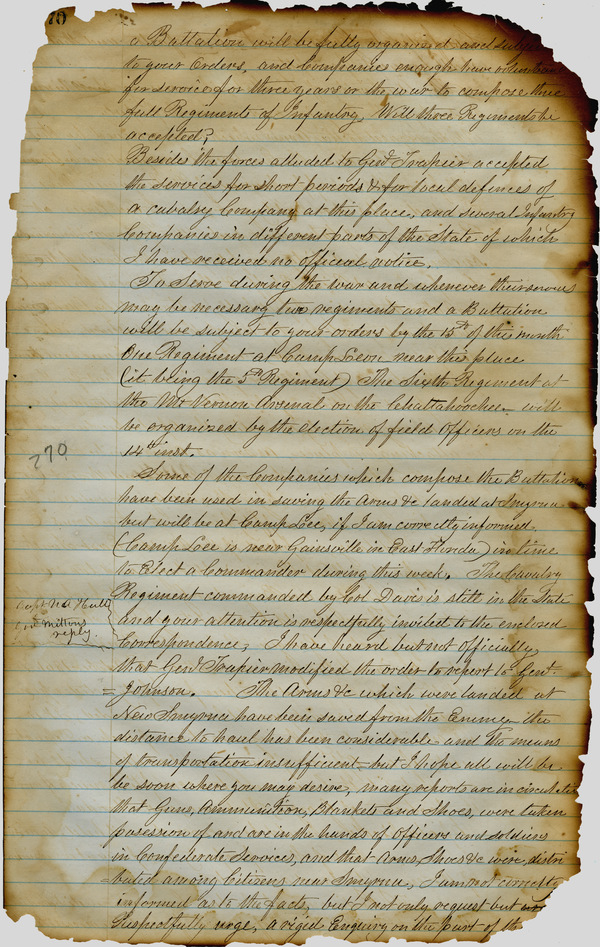 70
a Battalion will be fully organized and subj
to your Orders, and Companies enough have volunteer
for service for three years or the war to compose three
full Regiments of Infantry, Will three Regiments be
accepted?
Beside the forces alluded to Genl Trapier accepted
the services for short periods & for local defences of
a cavalry Company at this place, and several Infantry
Companies in different parts of the State of which
I have received no official notice.
To Serve during the war and whenever their services
may be necessary two regiments and a Battalion
will be subject to your orders by the 15th of this month
One Regiment at Camp Leon near this place
(it being the 5th Regiment) The Sixth Regiment at
the Mt Vernon Arsenal on the Chattahoochee will
be organized by the election of field Officers on the
14th inst.
270
Some of the Companies which compose the Battalion
have been used in saving the Arms &c landed at Smyrna
but will be at Camp Lee, if I am correctly informed
(Camp Lee is near Gainsville in East Florida) in time
to Elect a Commander during this week. The Cavalry
Regiment commanded by Col Davis is still in the State
Capt Hull
Gov Miltons
reply.
and your attention is respectfully invited to the enclosed
Correspondence, I have heard but not officially,
that Genl Trapier modified the order to report to Genl
Johnson. The Arms &c which were landed at
New Smyrna have been saved from the Enemy the
distance to haul has been considerable and the means
of transportation insufficient but I hope all will be
be soon where you may desire, many reports are in circulation
that Guns, Ammunition, Blankets and Shoes, were taken
possession of and are in the hands of Officers and soldiers
in Confederate Services, and that Arms, Shoes &c were distri
buted among Citizens near Smyrna, I am not correctly
informed as to the facts but I not only request but
respectfully urge, a rigid Enquiry on the part of the